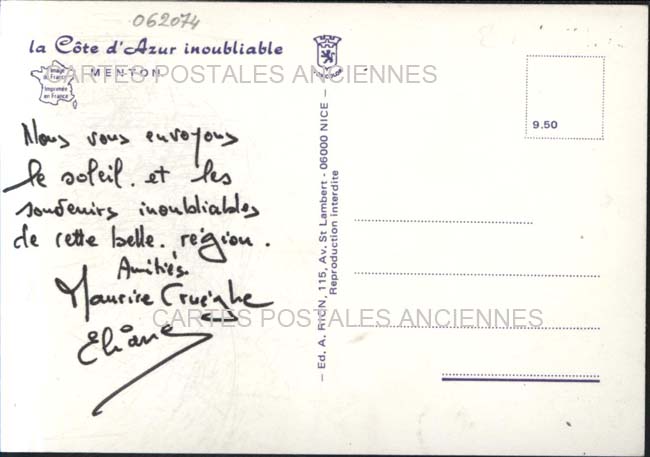 062074
la Côte d'Azur inoubliable
MENTON
CARTES POSTALES ANCIENNES
Image
de France
Imprimée
en France
9.50
Nous vous envoyons
le soleil. et les
souvenirs inoubliables
de cette belle. région.
Amitiés.
Maurice
Eliane
CARTES POSTALES ANCIENNES
— Ed. A. RION, 115, Av. St Lambert - 06000 NICE —
Reproduction interdite